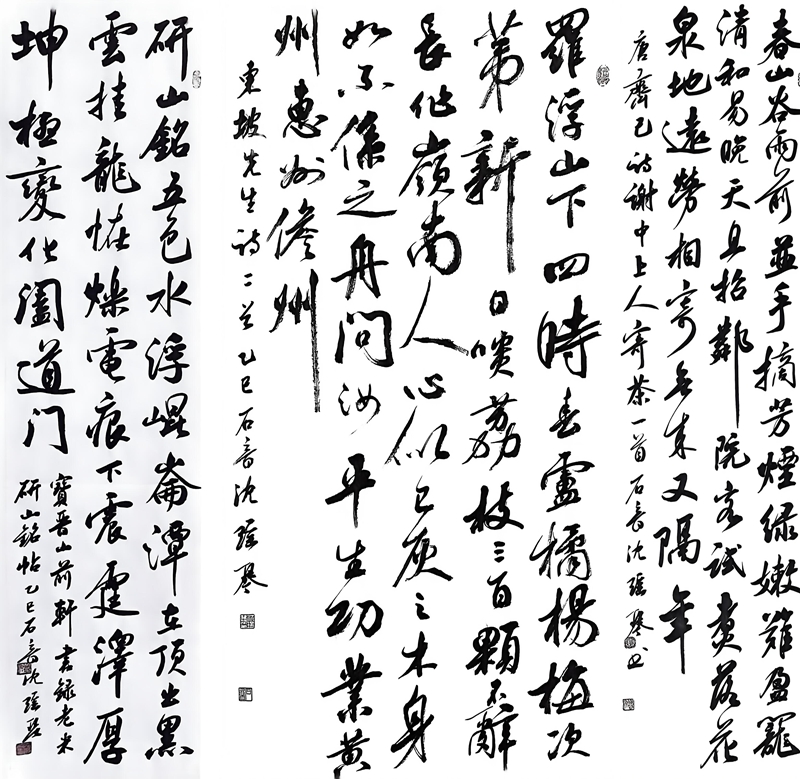 春山谷雨前並手摘芳煙綠嫩難盈籠
清和易晚天且招鄰院客試煮落花
泉地遠勞相寄无來又隔年
唐齊己詩謝中上人寄茶一首 石音沈瑶琴書
羅浮山下四時春盧橘楊梅次
苐新日啖荔枝三百顆不辭
長作嶺南人心似已灰之木身
如不係之舟問汝平生功業黃
州惠州儋州
東坡先生詩二首 乙巳石音沈瑶琴
研山銘五色水浮崐崙潭在頂出黑
雲挂龍怪爍電痕下震霆澤厚
坤極變化闔道门
寶晉山前軒書錄老米
研山銘帖乙巳石音沈瑶琴